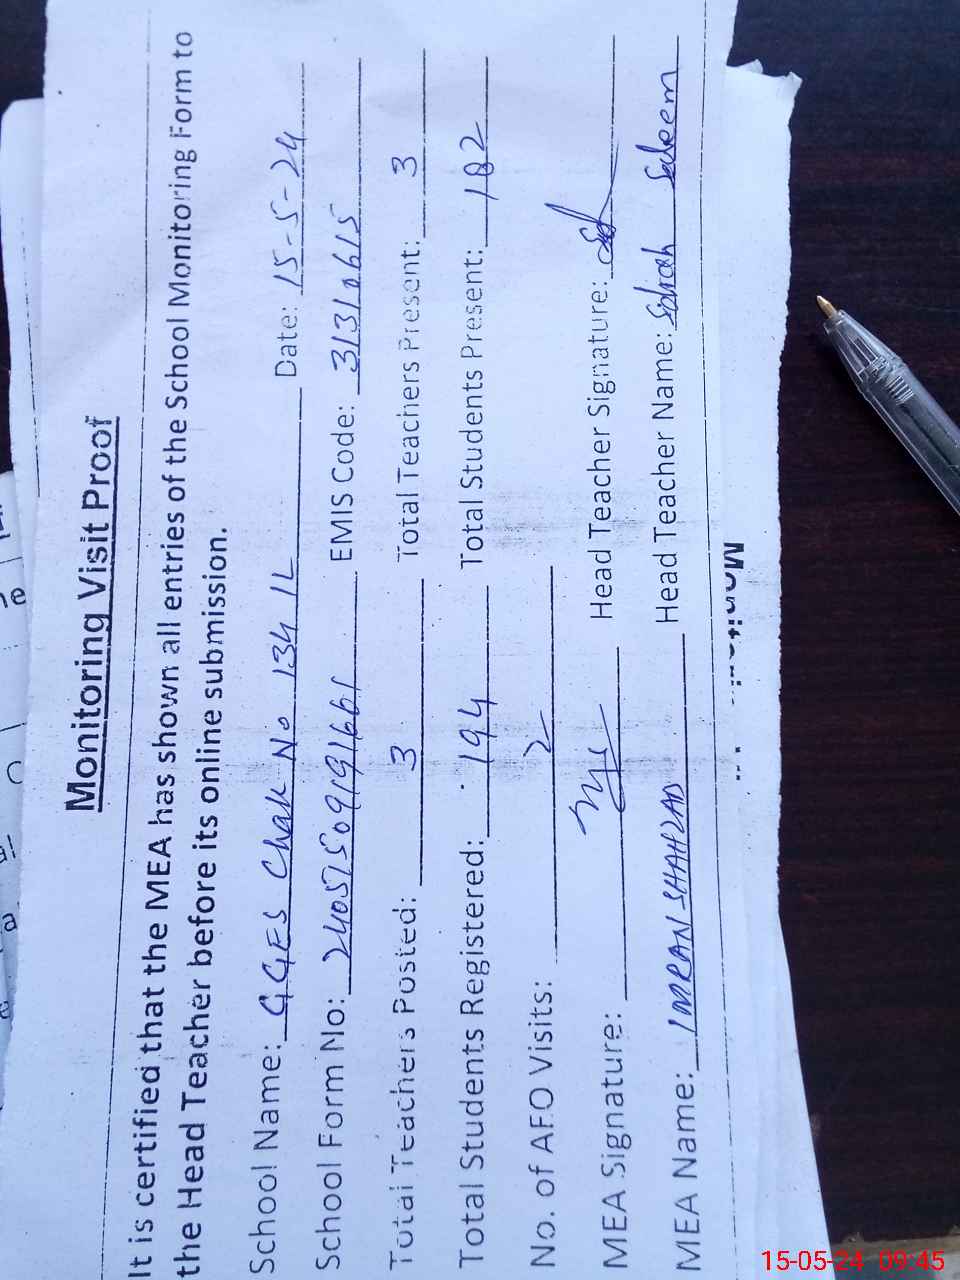 Monitoring Visit Proof
It is certified that the MEA has shown all entries of the School Monitoring Form to
the Head Teacher before its online submission.
School Name: GGES Chak No 134 1L Date: 15-5-24
School Form No: 24051509191661 EMIS Code: 31310615
Total Teachers Posted: 3 Total Teachers Present: 3
Total Students Registered: 194 Total Students Present: 182
No. of AEO Visits: 2
MEA Signature: Head Teacher Signature:
MEA Name: IMRAN SHAHZAD Head Teacher Name: Sidrah Saleem
15-05-24 09:45